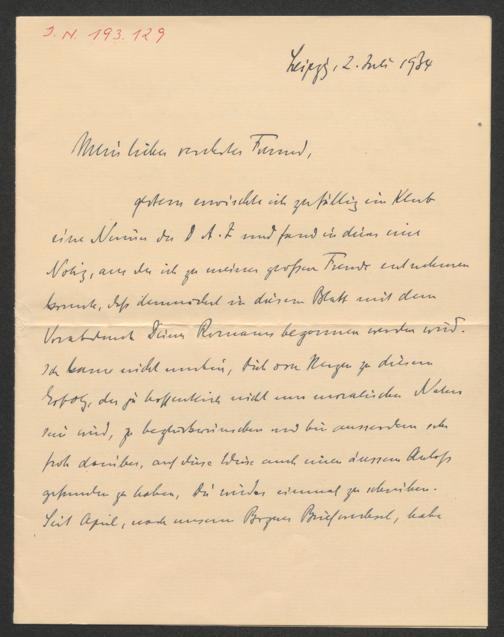 J. N. 193.129
Leipzig, 2. Juli 1934
Mein lieber verehrter Freund,
gestern erwischte ich zufällig im Klub
eine Nummer der D A Z und fand in dieser eine
Notiz, aus der ich zu meiner grossen Freude entnehmen
konnte, dass demnächst in diesem Blatt mit dem
Vorabdruck Deines Romans begonnen werden wird.
Ich kann nicht umhin, Dich von Herzen zu diesem
Erfolg, der ja hoffentlich nicht nur moralischer Natur
sein wird, zu beglückwünschen und bin ausserdem sehr
froh darüber, auf diese Weise auch einen äussern Anlass
gefunden zu haben, Dir wieder einmal zu schreiben.
Seit April, nach unserm Briefwechsel, habe